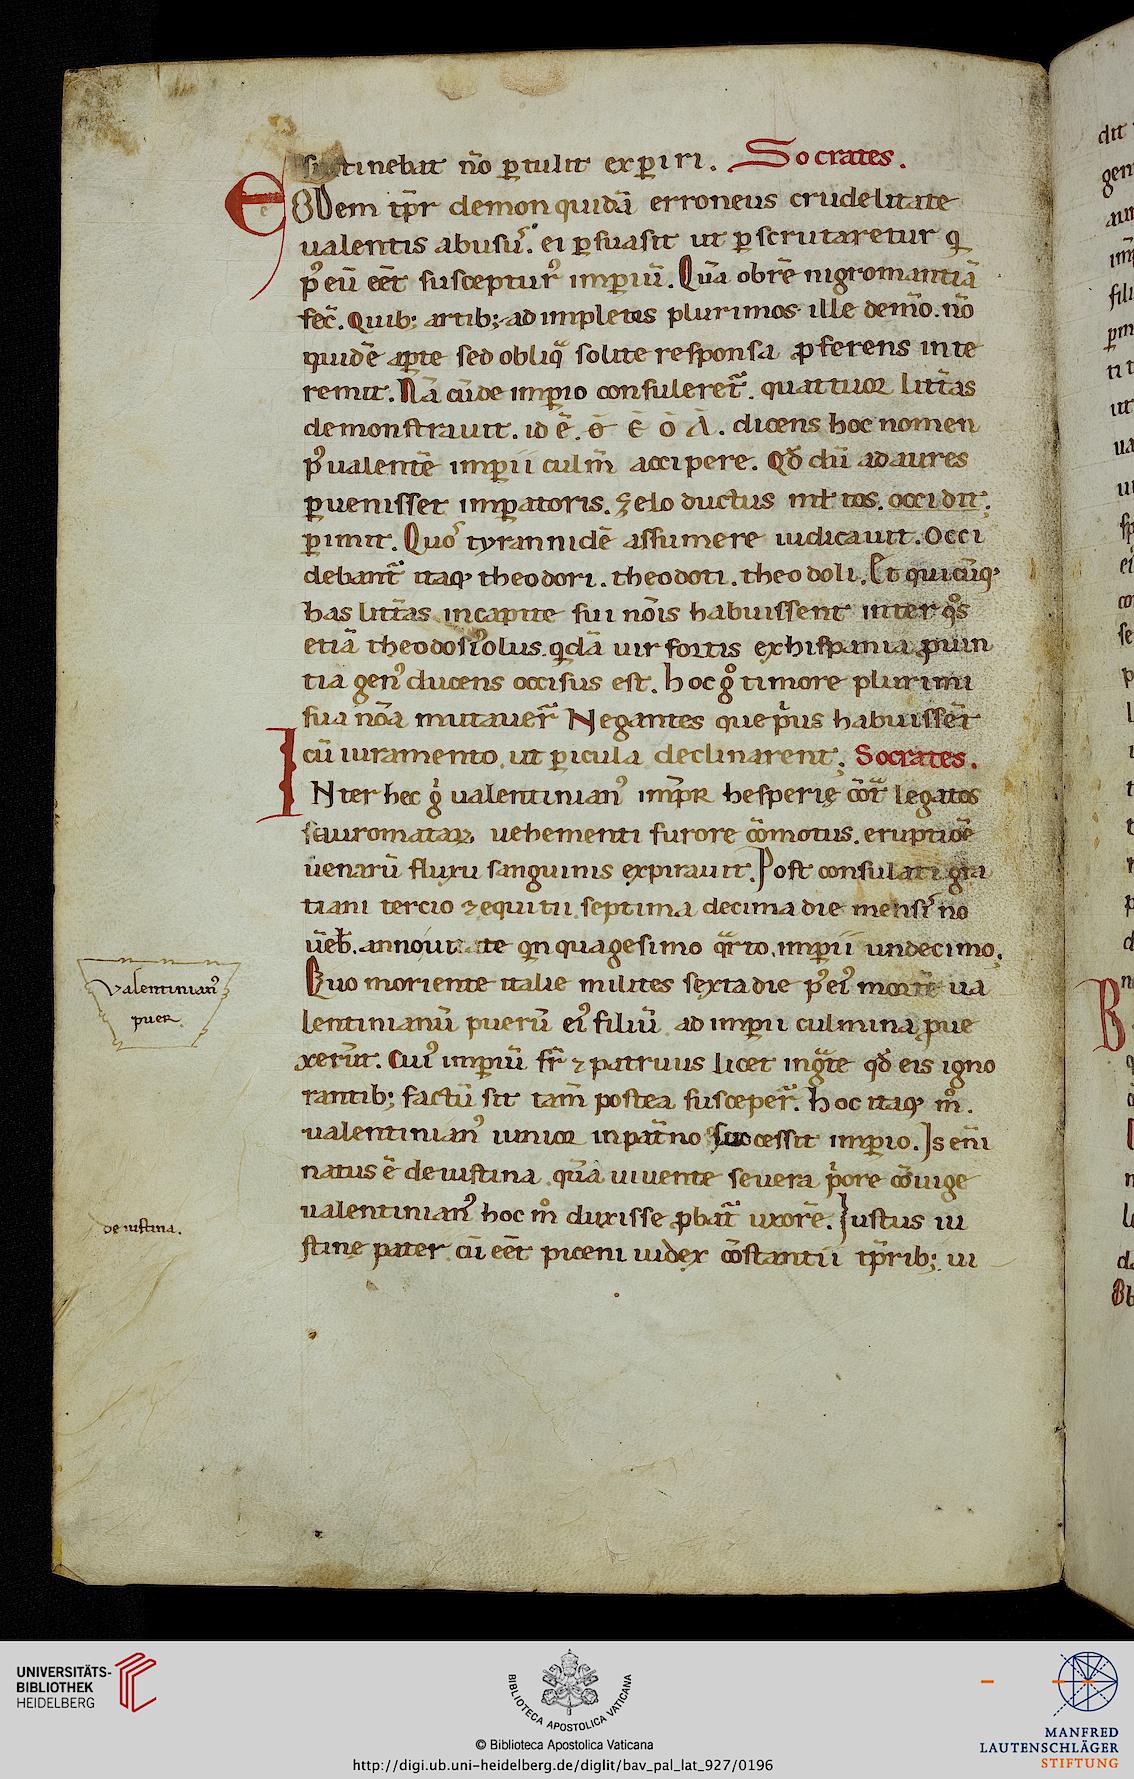 sustinebat nõ ꝑtulit exꝑiri. Socrates.
EODem tp̄r demon quidã erroneus crudelitate
ualentis abusuˢ. ei ꝑsuasit ut ꝑscrutaretur q
p᷒ eũ eēt suscepturꝰ imꝑiũ. Qũa obrē nigromantiã
fec̄. Quib; artib; adimpletis plurimos ille demõ. nõ
quidẽ aꝑte sed obliq̃ solite responsa ꝓferens inte
remit. Nã cũde imꝑio consuleret᷒. quattuor litt̃as
demonstrauit. id ẽ. θ ε ο Δ. dicens hoc nomen
p᷒ualentẽ imꝑii culm̃ accipere. Qđ cũ adaures
ꝑuenisset imꝑatoris. zelo ductus mĺtos. occidit.
ꝑimit. Quoˢ tyrannidẽ assumere iudicauit. Occi
debant᷒ itaqꝫ theodori. theodoti. theodoli. Et quicũqꝫ
has litt̃as incapite sui nõis habuissent inter qos
etiã theodosiolus. qdã uir fortis exhispania ꝓuin
tia genꝰ ducens occisus est. hoc gͦ timore plurimi
sua nõa mutauer᷒ Negantes que pͥus habuissēt
cũ iuramento. ut ꝑicula declinarent. Socrates.
INter hec gͥ ualentinianꝰ imp̄R hesperię cõt᷒ legatos
sauromataꝝ uehementi furore cõmotus. eruptiõe
uenarũ fluxu sanguinis expirauit. Post consulati gra
tiani tercio ⁊ equitii septima decima die mensiˢ no
uēb̄. anno uitate qnquagesimo qͣrto. imꝑii undecimo.
Quo moriente italie milites sexta die p᷒ eiꝰ mortẽ ua
lentinianũ puerũ eiꝰ filiũ ad imꝑii culmina ꝓue
xerũt. Cuiꝰ imꝑiũ fr̄ ⁊ patruus licet ingͣte qđ eis igno
rantib; factũ sit tam̃ postea susceper᷒. hoc itaqꝫ mͦ.
ualentinianꝰ iunior inpat̃no successit imꝑio. Is eñi
natus ẽ deiustina. qũa uiuente seuera pͥore cõiuge
ualentinianꝰ hoc mͦ duxisse ꝓbat᷒ uxorẽ. Iustus iu
stinę pater cũ eēt piceni iudex cõstantii tp̄rib; ui
Valentinianꝰ
pueR
de iustina.
UNIVERSITÄTS-
BIBLIOTHEK
HEIDELBERG
BIBLIOTECA APOSTOLICA VATICANA
© Biblioteca Apostolica Vaticana
http://digi.ub.uni-heidelberg.de/diglit/bav_pal_lat_927/0196
MANFRED
LAUTENSCHLÄGER
STIFTUNG